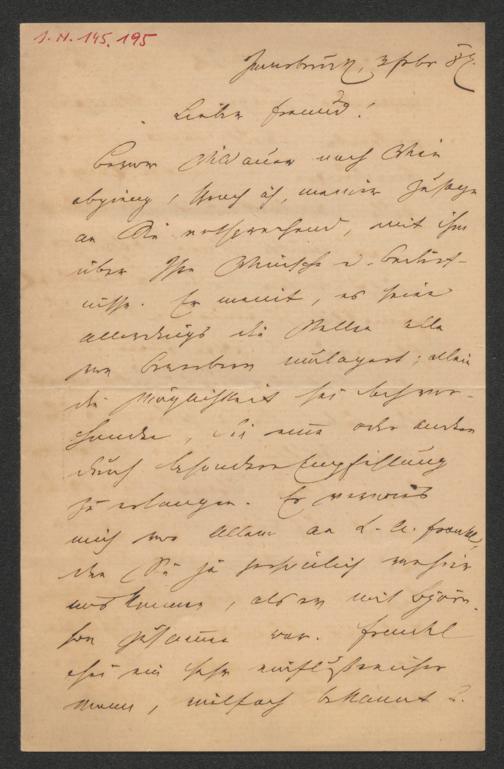 J.N. 145.195
Innsbruck, 3 Febr
Lieber Freund!
Bevor nach Wien
abgieng, sprach ich, meiner Zusage
an Sie entsprechend, mit ihm
über Ihre Wünsche u. Bedürf-
nisse. Er meint, es seien
allerdings die Stellen alle
von Bewerbern umlagert; allein
die Möglichkeit sei doch vor-
handen, die eine oder andere
durch besondere Empfehlung
zu erlangen. Er verwies
mich vor Allem an L. A. Frankl,
den Sie ja persönlich
kennen, als er mit Björn-
son zusammen war. Frankl
sei ein sehr einflußreicher
Mann, vielfach bekannt u.